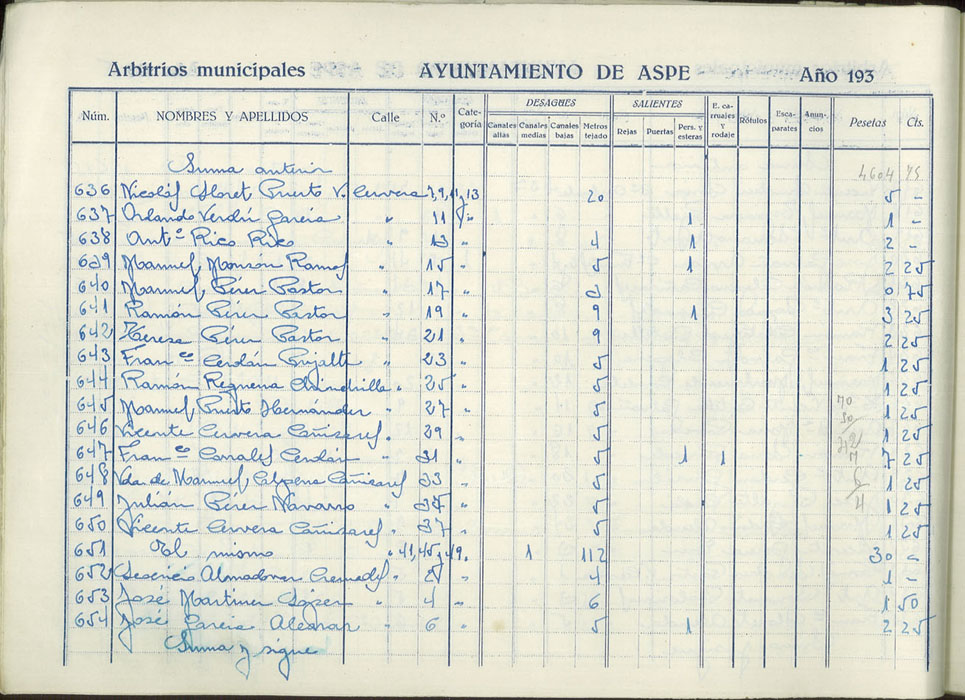 Arbitrios municipales AYUNTAMIENTO DE ASPE Año 193
Núm. NOMBRES Y APELLIDOS Calle N.º Categoría DESAGÜES Canales altas Canales medias Canales bajas Metros tejado SALIENTES Rejas Puertas Pers. y esteras E. carruajes y rodaje Rótulos Escaparates Anuncios Pesetas Cts.
Suma anterior 4604 75
636 Nicolás Lloret Puerto V. Cervera 7, 9, 11 y 13 20 5 -
637 Orlando Verdú García " 11 " 1 1 -
638 Antº Rico Rico " 13 " 4 1 2 -
639 Manuel Monzón Ramos " 15 " 5 1 2 25
640 Manuel Pérez Pastor " 17 " 0 75
641 Ramón Pérez Pastor " 19 " 9 1 3 25
642 Teresa Pérez Pastor " 21 " 9 2 25
643 Franco Cerdán " 23 " 5 1 25
644 Ramón Requena " 25 " 5 1 25
645 Manuel Puerto Hernández " 27 " 5 1 25
646 Vicente Cervera Cañizares " 29 " 5 1 25
647 Franco Canales Cerdán " 31 " 5 1 1 7 25
648 Vda. de Manuel Calpena Cañizares 33 " 5 1 25
649 Julián Pérez Navarro " 35 " 5 1 25
650 Vicente Cervera Cañizares " 37 " 5 1 25
651 El mismo " 41, 45 y 49. 1 112 30 -
652 Almodovar Cremades " 2 " 4 1 -
653 José Martínez López " 4 " 6 1 50
654 José García Alcaraz " 6 " 5 1 2 25
Suma y sigue